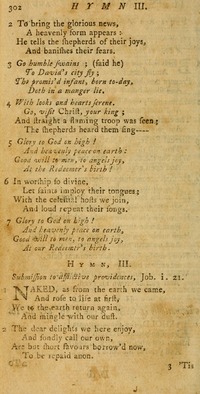 302 HYMN III.
2 To bring the glorious news,
A heavenly form appears :
He tells the ſhepherds of their joys,
And baniſhes their fears.
3 Go humble ſwains ; (ſaid he)
To David's city fly ;
The promis'd infant, born to-day,
Doth in a manger lie.
4 With looks and hearts ſerene.
Go, viſit Chriſt, your king ;
And ſtraight a flaming troop was ſeen;
The ſhepherds heard them ſing——
5 Glory to God on high !
And heavenly peace on earth :
Good will to men, to angels joy,
At the Redeemer's birth !
6 In worſhip ſo divine,
Let ſaints imploy their tongues;
With the celeſtial hoſts we join,
And loud repeat their ſongs.
7 Glory to God on high !
And heavenly peace on earth,
Good will to men, to angels joy,
At our Redeemer's birth !
HYMN, III.
Submiſſion to afflictive providences, Job. i. 21.
1 NAKED, as from the earth we came,
And roſe to life at firſt,
We to the earth return again,
And mingle with our duſt.
2 The dear delights we here enjoy,
And fondly call our own,
Are but ſhort favours borrow'd now,
To be repaid anon.
3 'Tis